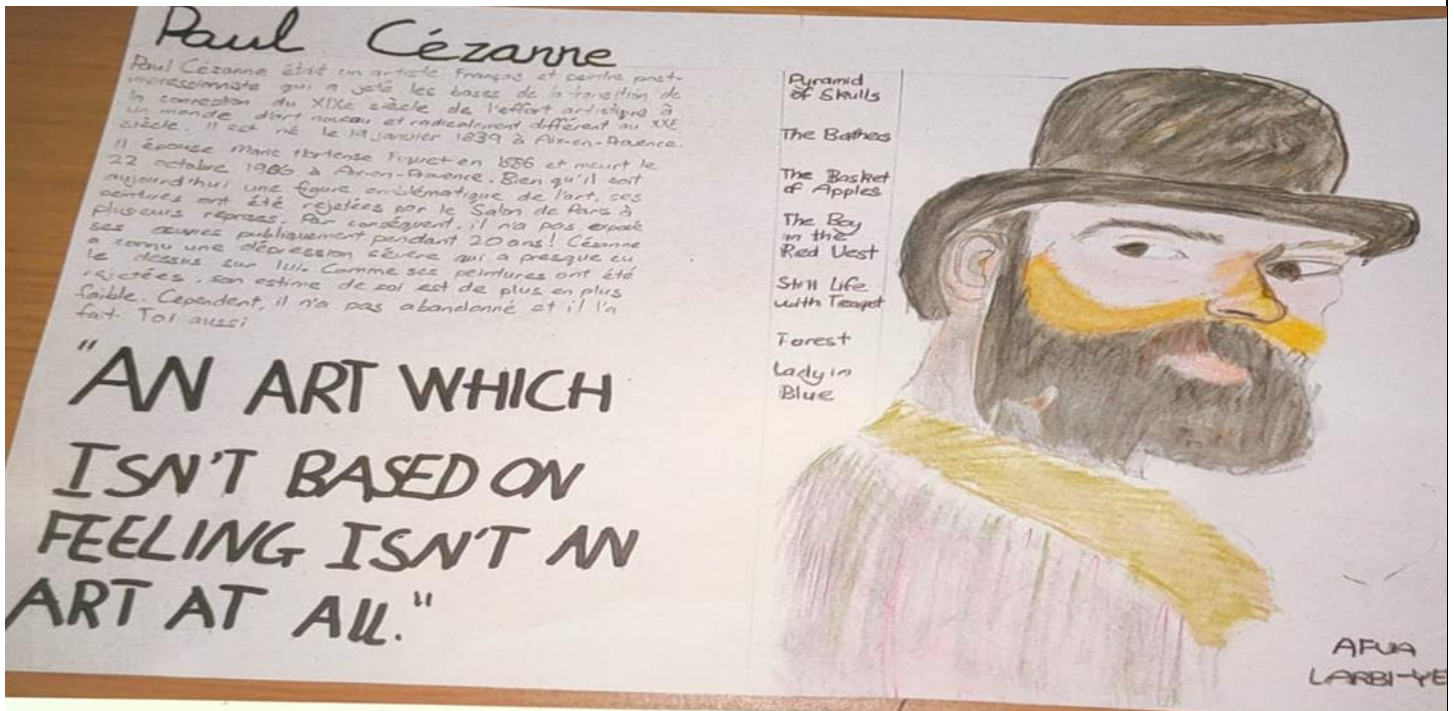 Paul Cézanne
Paul Cézanne était un artiste Français et peintre post-
impressionniste qui a jeté les bases de la transition de
la conception du XIXe siècle de l'effort artistique à
un monde d'art nouveau et radicalement différent au XXe
siècle. Il est né le 19 janvier 1839 à Aix-en-Provence.
Il épouse Marie Hortense Fiquet en 1886 et meurt le
22 octobre 1906 à Aix-en-Provence. Bien qu'il soit
aujourd'hui une figure emblématique de l'art, ses
peintures ont été rejetées par le Salon de Paris à
plusieurs reprises. Par conséquent, il n'a pas exposé
ses œuvres publiquement pendant 20 ans! Cézanne
a connu une dépression sévère qui a presque eu
le dessus sur lui. Comme ses peintures ont été
rejetées, son estime de soi est de plus en plus
faible. Cependent, il n'a pas abandonné et il l'a
fait. Toi aussi
"AN ART WHICH
ISN'T BASED ON
FEELING ISN'T AN
ART AT ALL."
Pyramid
of Skulls
The Bathers
The Basket
of Apples
The Boy
in the
Red Vest
Still Life
with Teapot
Forest
Lady in
Blue
AFUA
LARBI-YE